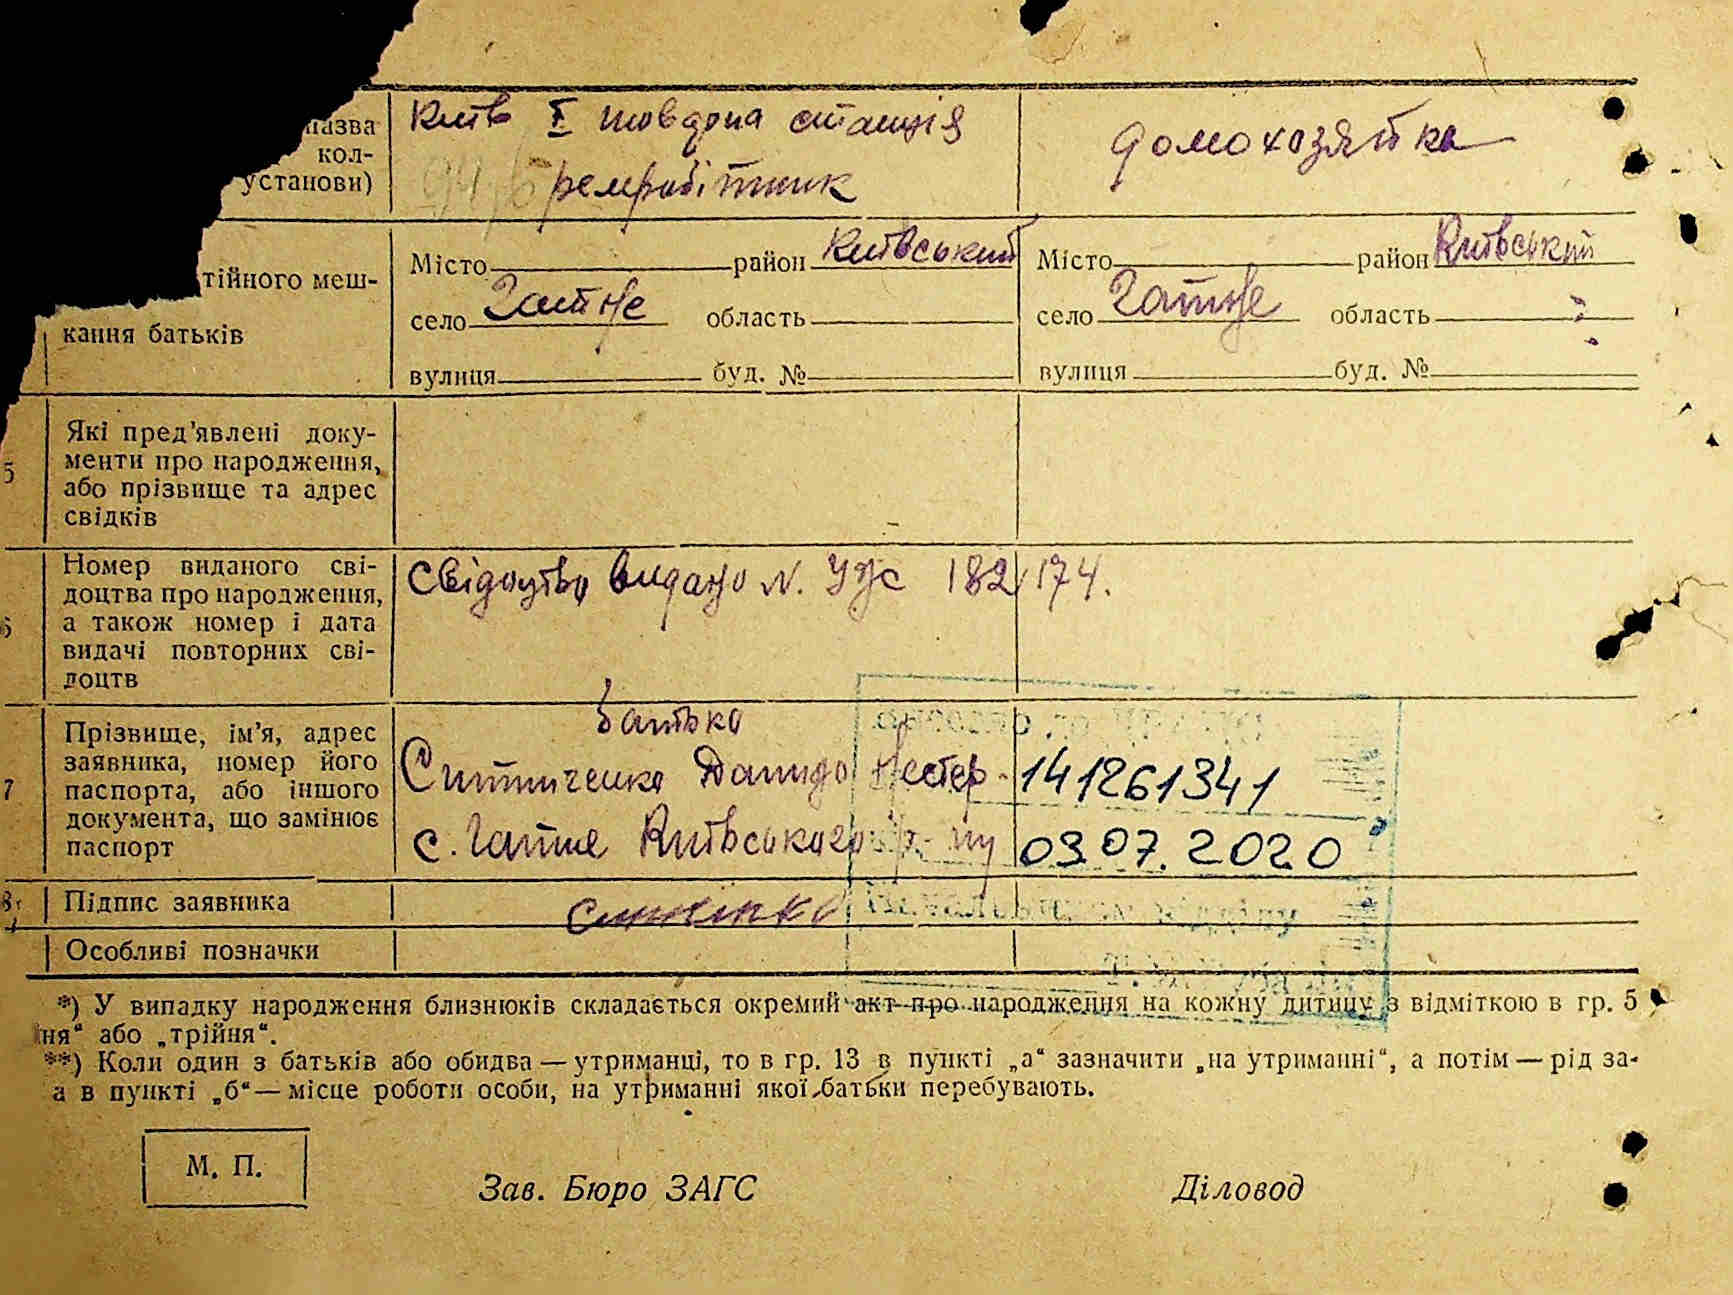 назва
Київ І товарна станція
домохозяйка
кол-
установи)
ремробітник
тійного меш-
кання батьків
Місто район Київський
село Гатне область
вулиця буд. №
Місто район Київський
село Гатне область
вулиця буд. №
5
Які пред'явлені доку-
менти про народження,
або прізвище та адрес
свідків
6
Номер виданого сві-
доцтва про народження,
а також номер і дата
видачі повторних сві-
доцтв
Свідоцтво видано N. 182174.
7
Прізвище, ім'я, адрес
заявника, номер його
паспорта, або іншого
документа, що замінює
паспорт
Батько
Ситниченко Данило Нестер.
с. Гатне Київського р-ну
141261341
03.07.2020
8
Підпис заявника
Особливі позначки
*) У випадку народження близнюків складається окремий акт про народження на кожну дитину з відміткою в гр. 5
ня“ або „трійня“.
**) Коли один з батьків або обидва — утриманці, то в гр. 13 в пункті „а“ зазначити „на утриманні“, а потім — рід за-
а в пункті „б“ — місце роботи особи, на утриманні якої батьки перебувають.
М. П.
Зав. Бюро ЗАГС
Діловод